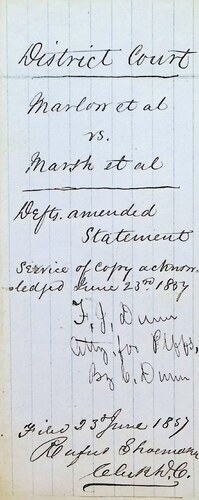 District Court
Marlow et al
vs.
Marsh et al
Defts. amended
Statement
Service of copy acknow-
ledged June 23rd 1857
F. J. Dunn
Atty. for Plffs,
By C. Dunn
Filed 23d June 1857
Rufus Shoemaker
Clerk D.C.